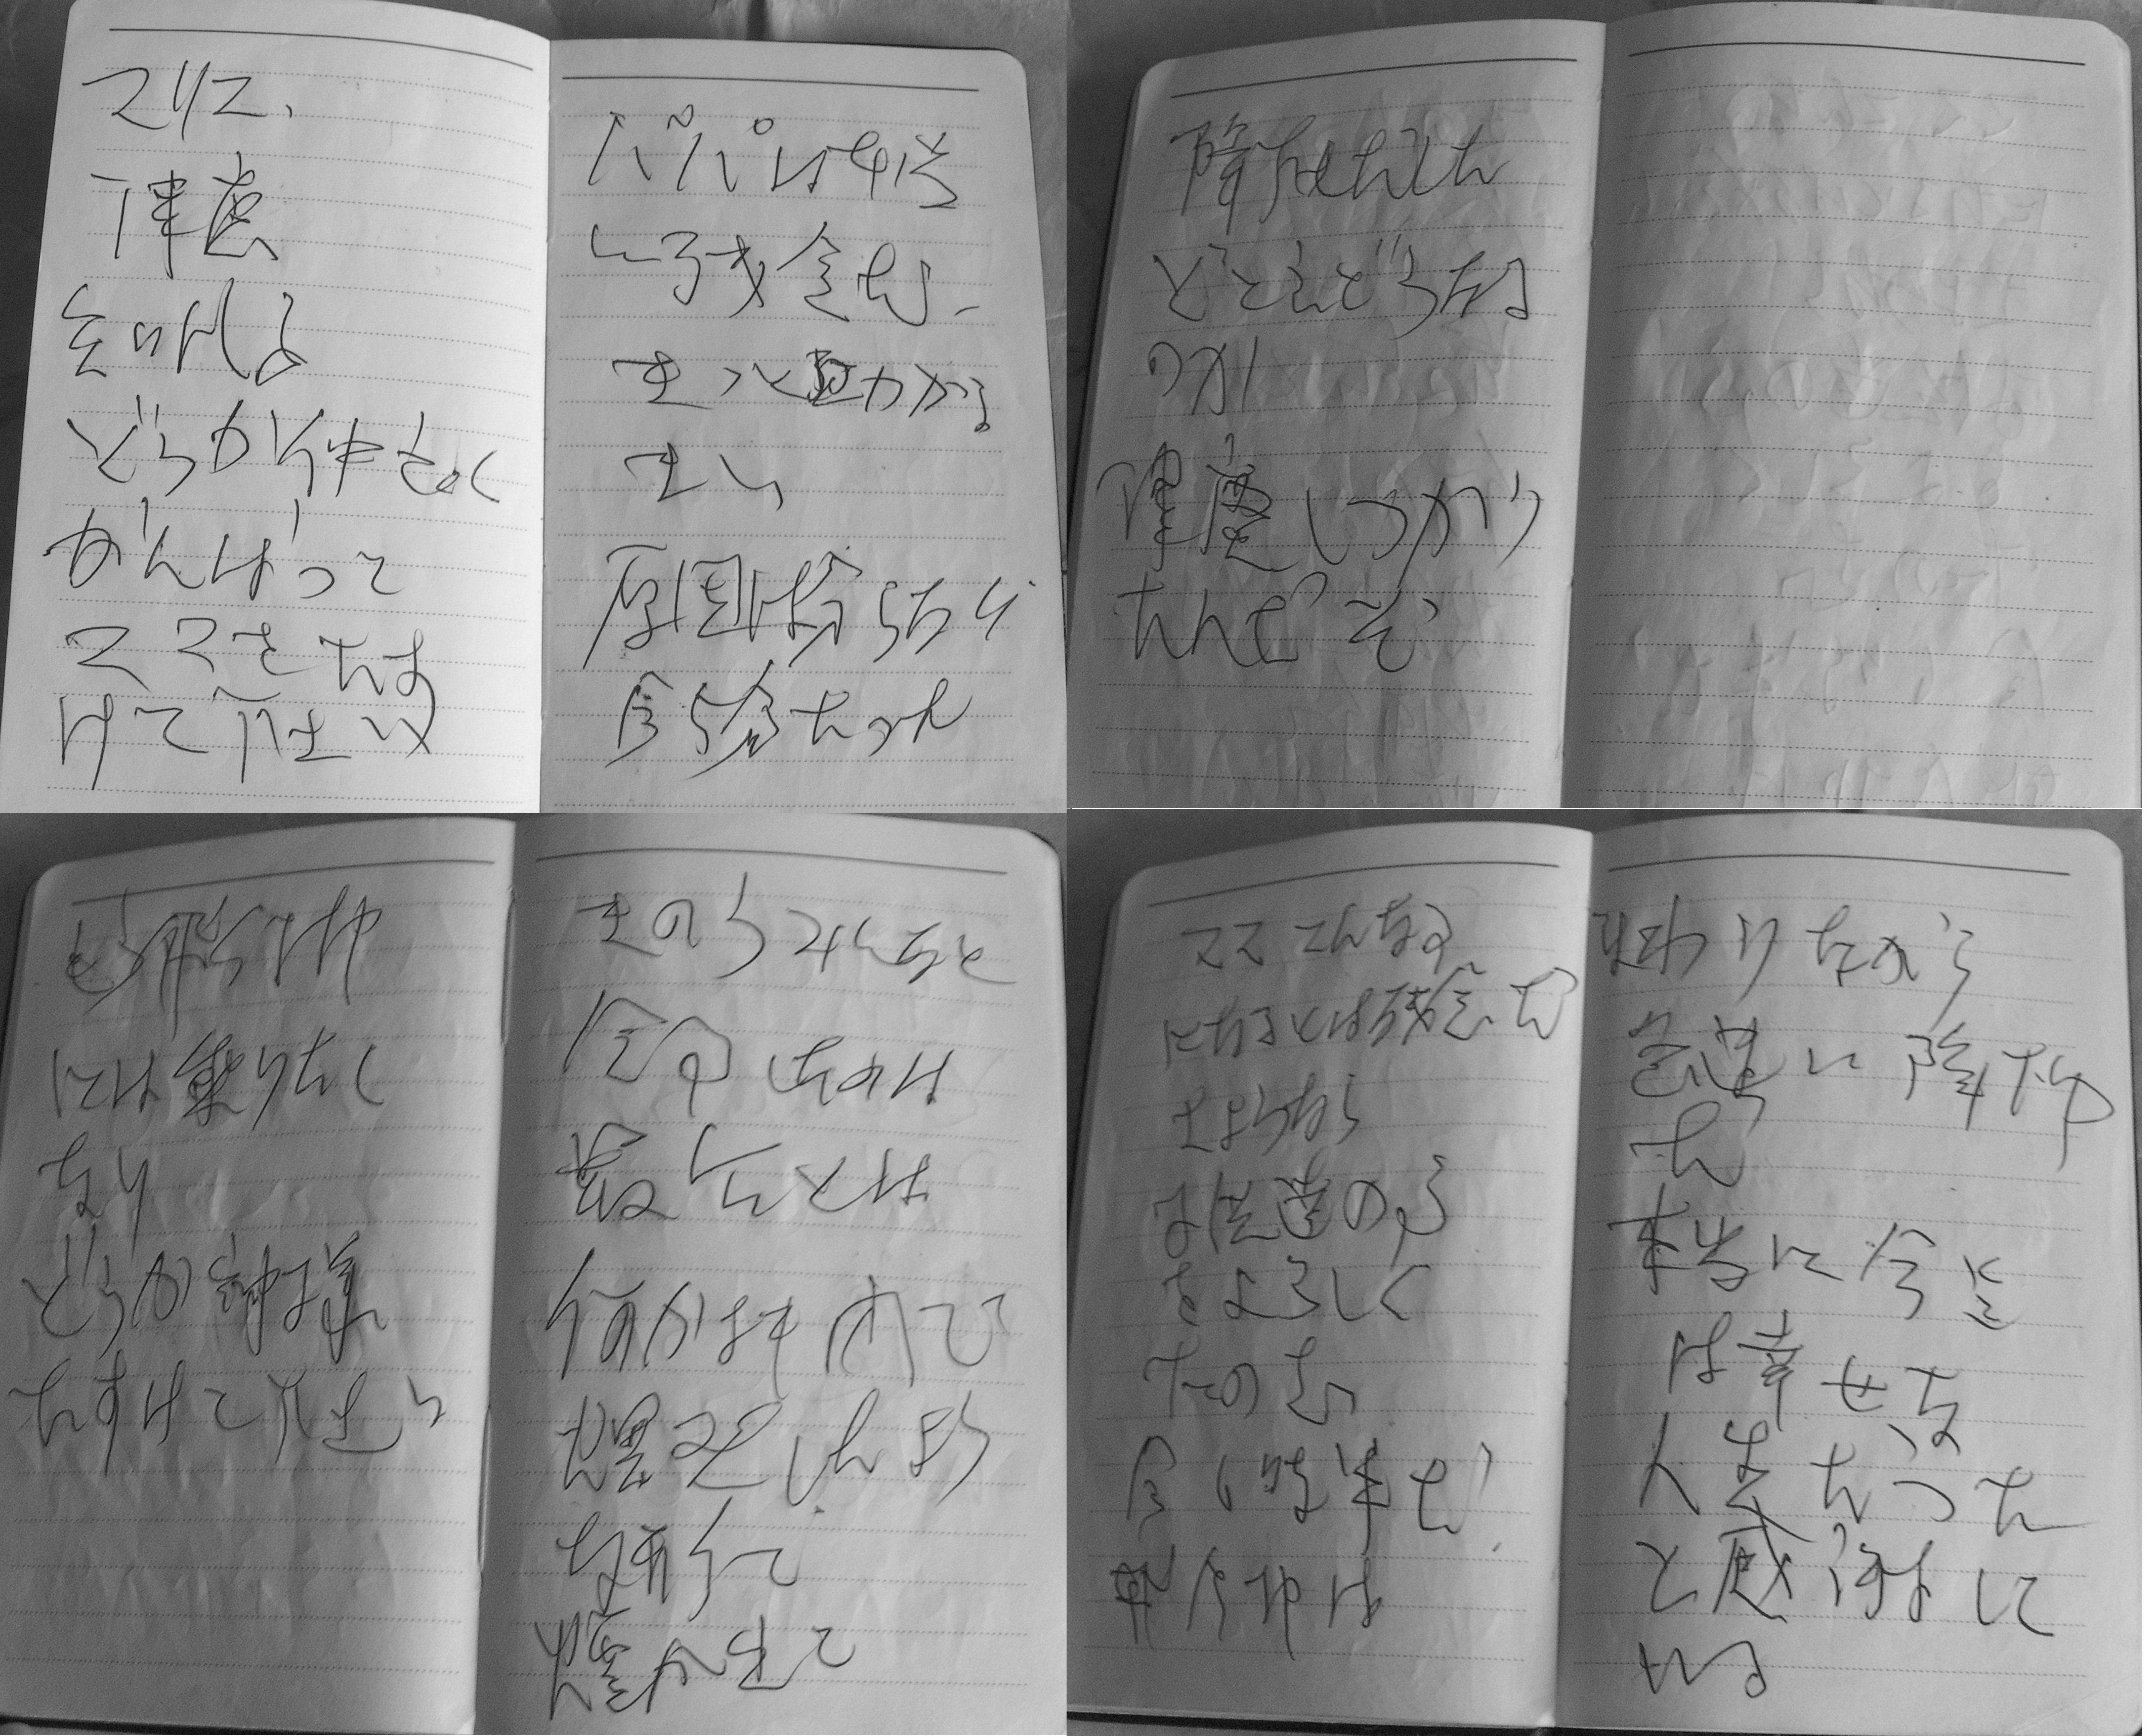 マリコ、
津慶
知代子
どうか仲良く
がんばって
ママをたす
けて下さい
パパは本当
に残念だ
きっと助かる
まい
原因は分らない
今5分たった
降下しだした
どこえどうなる
のか
津慶しっかり
たんだぞ
もう飛行機
には乗りたく
ない
どうか神様
たすけて下さい
きのうみんなと
食事したのは
最后とは
何か機内で
爆発したよう
な形で
煙が出て
ママこんな事
になるとは残念だ
さようなら
子供達の事
をよろしく
たのむ
今6時半だ
飛行機は
まわりながら
急速に降下中
だ
本当に今迄
は幸せな
人生だった
と感謝して
いる